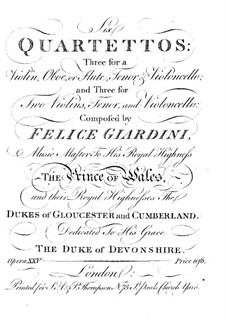 Six
QUARTETTOS:
Three for a
Violin, Oboe, or Flute, Tenor & Violoncello:
and Three for
Two Violins, Tenor, and Violoncello:
Composed by
FELICE GIARDINI,
Music Master To His Royal Highness
THE Prince OF Wales,
and their Royal Highnesses The
DUKES of GLOUCESTER and CUMBERLAND.
Dedicated To His Grace
THE DUKE of DEVONSHIRE.
Opera XXV Price 10/6.
London:
Printed for S. A. & P. Thompson No. 75 St. Pauls Church Yard.